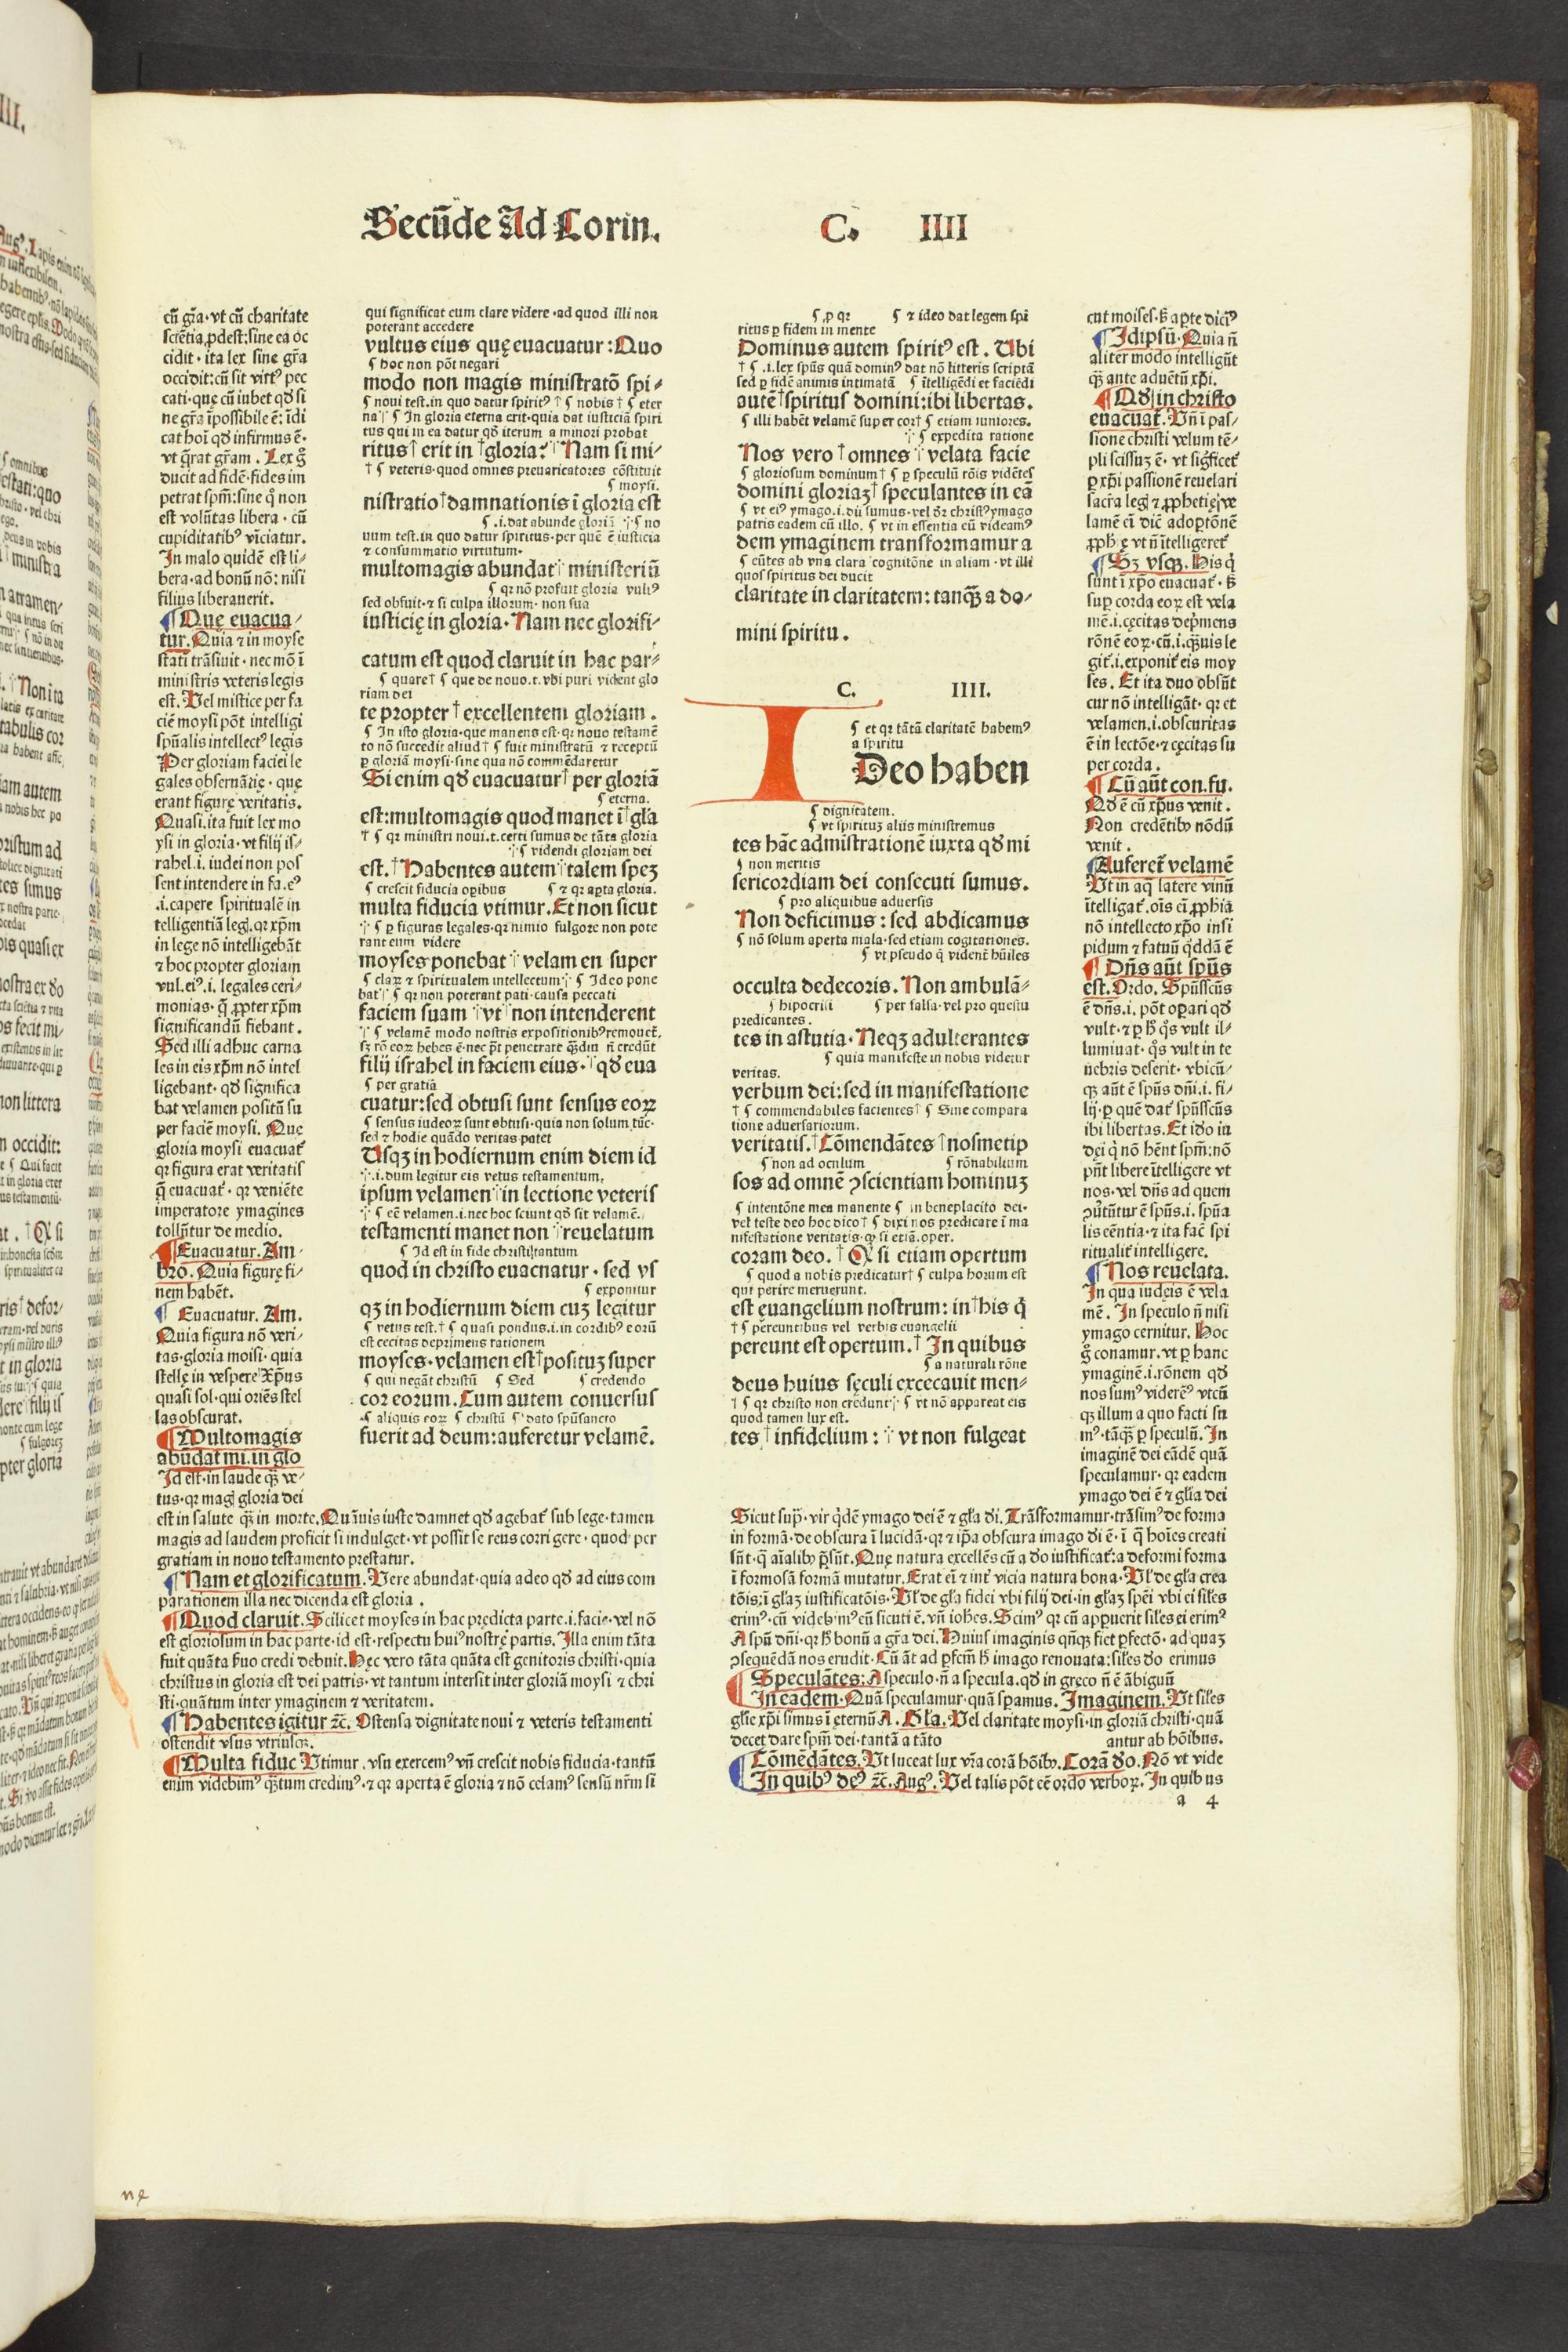 Secūde Ad Corin. C. IIII
cū gr̄a·vt cū charitate
sciētia ꝓdest:sine ea oc
cidit·ita lex sine gr̄a
occidit:cū sit virtꝰ pec
cati·quę cū iubet qd̄ si
ne gr̄a īpossibile ē:īdi
cat hoī qd̄ infirmus ē·
vt q̄rat gr̄am. Lex g̊
ducit ad fidē·fides im
petrat sp̄m:sine q̄ non
est volūtas libera·cū
cupiditatibꝰ vīciatur.
In malo quidē est li-
bera·ad bonū nō: nisi
filius liberauerit.
¶ Quę euacua-
tur. Quia ⁊ in moyse
stati trāsiuit·nec mō ī
ministris veteris legis
est. Vel mistice per fa
ciē moysi pōt intelligi
spūalis intellectꝰ legis
Per gloriam faciei le
gales obseruātię·quę
erant figurę veritatis.
Quasi.ita fuit lex mo
ysi in gloria·vt filij is-
rahel.i.iudei non pos
sent intendere in fa.eꝰ
.i.capere spirituale in
telligentiā leg.qr xp̄m
in lege nō intelligebāt
⁊ hoc propter gloriam
vul.eiꝰ.i. legales ceri-
monias·q̄ ꝓpter xp̄m
significandū fiebant.
Sed illi adhuc carna
les in eis xp̄m nō intel
ligebant·qd̄ significa
bat velamen positū su
per faciē moysi. Quę
gloria moysi euacuat̄
qr figura erat veritatis
q̄ euacuat̄·qr veniēte
imperatore ymagines
tollūtur de medio.
¶ Euacuatur. Am-
bro. Quia figurę fi-
nem habēt.
¶ Euacuatur. Am.
Quia figura nō veri-
tas·gloria moisi·quia
stellę in vespere Xp̄us
quasi sol·qui oriēs stel
las obscurat.
¶ Multomagis
abūdat mi.in glo
Id est·in laude q̄ꝫ ve-
tus·qr mag gloria dei
est in salute q̄ꝫ in morte. Quāuis iuste damnet qd̄ agebat̄ sub lege·tamen
magis ad laudem proficit si indulget·vt possit se reus corrigere·quod per
gratiam in nouo testamento prestatur.
¶ Nam et glorificatum. Vere abundat·quia adeo qd̄ ad eius com
parationem illa nec dicenda est gloria.
¶ Quod claruit. Scilicet moyses in hac prędicta parte.i.facie·vel nō
est gloriosum in hac parte·id est·respectu huiꝰ nostrę partis. Illa enim tāta
fuit quāta suo credi debuit. Hęc vero tāta quāta est genitoris christi·quia
christus in gloria est dei patris·vt tantum intersit inter gloriā moysi ⁊ chri
sti·quātum inter ymaginem ⁊ veritatem.
¶ Habentes igitur ⁊c. Ostensa dignitate noui ⁊ veteris testamenti
ostendit vsus vtriusqꝫ.
¶ Multa fiduc Vtimur.vsu exercemꝰ vn̄ crescit nobis fiducia·tantū
enim videbimꝰ q̄ꝫtum credimꝰ·⁊ qr aperta ē gloria ⁊ nō celamꝰ sensū nr̄m si
qui significat eum clare videre·ad quod illi non
poterant accedere
vultus eius quę euacuatur: Quo
¶ hoc non pōt negari
modo non magis ministratō spi-
¶ noui test.in quo datur spiritꝰ † ¶ nobis † ¶ eter
na ¶ In gloria eterna erit·quia dat iusticiā spiri
tus qui in ea datur qd̄ iterum a minori probat
ritus † erit in † gloria? Nam si mi-
† ¶ veteris·quod omnes preuaricatores cōstituit
¶ moysi.
nistratio † damnationis ī gloria est
¶ .i.dat abunde gloriā ¶ no
uum test.in quo datur spiritus·per quē ē iusticia
⁊ consummatio virtutum·
multomagis abundat † ministeriū
¶ qr nō profuit gloria vultꝰ
sed obfuit·⁊ si culpa illorum·non sua
iusticię in gloria· Nam nec glorifi-
catum est quod claruit in hac par-
¶ quare † ¶ que de nouo.t.vbi puri vident glo
riam dei
te propter † excellentem gloriam.
¶ In isto gloria·que manens est·qr nouo testamē
to nō succedit aliud † ¶ fuit ministratū ⁊ receptū
ꝑ gloriā moysi·sine qua nō commēdaretur
Si enim qd̄ euacuatur † per gloriā
¶ eterna.
est:multomagis quod manet ī † gl̄a
† ¶ qr ministri noui.t.certi sumus de tāta gloria
¶ videndi gloriam dei
est. † Habentes autem talem speꝫ
¶ crescit fiducia operibus ¶ ⁊ qr aperta gloria.
multa fiducia vtimur. Et non sicut
¶ ꝑ figuras legales·qr nimio fulgore non pote
rant eum videre
moyses ponebat velamen super
¶ claꝝ ⁊ spiritualem intellectum ¶ Ideo pone
bat ¶ qr non poterant pati·causa peccati
faciem suam vt non intenderent
¶ velamē modo nostris expositionibꝰ remouet̄.
sꝫ rō eoꝝ hebes ē·nec pt̄ penetrare q̄ꝫdiu n̄ credūt
filij israhel in faciem eius· qd̄ eua
¶ per gratiā
cuatur:sed obtusi sunt sensus eoꝝ
¶ sensus iudeoꝝ sunt obtusi·quia non solum tūc·
sed ⁊ hodie quādo veritas patet
Usqꝫ in hodiernum enim diem id
.i.dum legitur eis vetus testamentum.
ipsum velamen in lectione veteris
¶ eē velamen.i.nec hoc sciunt qd̄ sit velamē.
testamenti manet non reuelatum
¶ Id est in fide christi tantum
quod in christo euacuatur· sed vs
¶ exponitur
qꝫ in hodiernum diem cuꝫ legitur
¶ vetus test. † ¶ quasi pondus.i.in cordibꝰ eorū
est cecitas deprimens rationem
moyses·velamen est † posituꝫ super
¶ qui negāt christū ¶ Sed ¶ credendo
cor eorum. Cum autem conuersus
¶ aliquis eoꝝ ¶ christū ¶ dato spūsancto
fuerit ad deum:auferetur velamē.
¶ ꝓ qr ¶ ⁊ ideo dat legem spi
ritus ꝑ fidem in mente
Dominus autem spiritꝰ est. Ubi
† ¶ .i.lex spūs quā dominꝰ dat nō litteris scriptā
sed ꝑ fidē animis intimatā ¶ ītelligēdi et faciēdi
autē † spiritus domini:ibi libertas.
¶ illi habēt velamē super cor † ¶ etiam iuniores.
¶ expedita ratione
Nos vero † omnes velata facie
¶ gloriosum dominum † ¶ ꝑ speculū rōis vidētes
domini gloriaꝫ † speculantes in eā
¶ vt eiꝰ ymago.i.dū sumus·vel dr̄ christꝰ ymago
patris eadem cū illo. ¶ vt in essentia cū videamꝰ
dem ymaginem transformamur a
¶ eūtes ab vna clara cognitōne in aliam·vt illi
quos spiritus dei ducit
claritate in claritatem: tanq̄ꝫ a do-
mini spiritu.
C. IIII.
¶ et qr tātā claritatē habemꝰ
a spiritu
I Deo haben
¶ dignitatem.
¶ vt spirituꝫ aliis ministremus
tes hāc admistrationē iuxta qd̄ mi
¶ non meritis
sericordiam dei consecuti sumus.
¶ pro aliquibus aduersis
Non deficimus: sed abdicamus
¶ nō solum aperta mala·sed etiam cogitationes.
¶ vt pseudo q̄ vident̄ hūiles
occulta dedecoris. Non ambulā-
¶ hipocrisi ¶ per falsa·vel pro questu
predicantes.
tes in astutia· Neqꝫ adulterantes
¶ quia manifeste in nobis videtur
veritas.
verbum dei:sed in manifestatione
† ¶ commendabiles facientes † ¶ Sine compara
tione aduersariorum.
veritatis. † Cōmendātes † nosmetip
¶ non ad oculum ¶ rōnabilium
sos ad omnē ꝯscientiam hominuꝫ
¶ intentōne mea manente ¶ in beneplacito dei·
vel teste deo hoc dico † ¶ dixi nos predicare ī ma
nifestatione veritatis·qꝫ si etiā.oper.
coram deo. † Qꝫ si etiam opertum
¶ quod a nobis predicatur † ¶ culpa horum est
qui perire meruerunt.
est ęuangelium nostrum: in † his q̄
† ¶ pereuntibus vel verbis euangelii
pereunt est opertum. † In quibus
¶ a naturali rōne
deus huius sęculi excecauit men-
† ¶ qr christo non credunt ¶ vt nō appareat eis
quod tamen lux est.
tes † infidelium: vt non fulgeat
cut moises·s̄ aꝑte dicīꝰ
¶ Idipsū. Quia n̄
aliter modo intelligūt
q̄ꝫ ante aduētū xp̄i.
¶ Qd̄ in christo
euacuat̄. Vn̄ ī pas-
sione christi velum tē-
pli scissuꝫ ē·vt sigficet̄
ꝑ xp̄i passionē reuelari
sacr̄a leg ⁊ ꝓphetię·ve
lamē ei dic̄ adoptōnē
ꝓph ę vt n̄ ītelligeret̄
¶ Sꝫ vsqꝫ. His q̄
sunt ī xp̄o euacuat̄·s̄
suꝑ corda eoꝝ est vela
mē.i.cęcitas dep̄mens
rōnē eoꝝ·cū.i.q̄ꝫuis le
git̄.i.exponit̄ eis moy
ses. Et ita duo obsūt
cur nō intelligāt·qr et
velamen.i.obscuritas
ē in lectōe·⁊ cęcitas su
per corda.
¶ Cū aūt con.fu.
Qd̄ ē cū xp̄us venit.
Non credētibꝰ nōdū
venit.
¶ Auferet̄ velamē
Vt in aq̄ latere vinū
ītelligat̄.oīs ei ꝓphīa
nō intellecto xp̄o insi
pidum ⁊ fatuū q̄ddā ē
¶ Dn̄s aūt spūs
est. Ordo. Spūsscūs
ē dn̄s.i. pōt oꝑari qd̄
vult·⁊ ꝑ h̄ q̄s vult il-
luminat·q̄s vult in te
nebris deserit·vbicū-
qꝫ aūt ē spūs dn̄i.i.fi-
lij·ꝑ quē dat̄ spūsscūs
ibi libertas. Et ido iu
dęi q̄ nō hēnt sp̄m:nō
pn̄t libere ītelligere vt
nos·vel dn̄s ad quem
ꝯūtūtur ē spūs.i.spūa
lis cēntia·⁊ ita fac̄ spi
ritualit̄ intelligere.
¶ Nos reuelata.
In qua iudęis ē vela
mē. In speculo n̄ nisi
ymago cernitur. Hoc
g̊ conamur·vt ꝑ hanc
ymaginē.i.rōnem qd̄
nos sumꝰ viderēꝰ vtcū
qꝫ illum a quo facti su
mꝰ·tāq̄ꝫ ꝑ speculū. In
imaginē dei eādē quā
speculamur·qr eadem
ymago dei ē ⁊ gl̄ia dei
Sicut supͣ·vir q̄dē ymago dei ē ⁊ gl̄a dī. Trāsformamur·trāsimꝰ de forma
in formā·de obscura ī lucidā·qr ⁊ ip̄a obscura imago dī ē·ī q̄ hoīes creati
sūt·q̄ aīalibꝰ p̄sūt. Quę natura excellēs cū a do iustificat̄:a deformi forma
ī formosā formā mutatur. Erat eī ⁊ int̄ vicia natura bona. Vl̄ de gl̄a crea
tōis:ī gl̄aꝫ iustificatōis. Vl̄ de gl̄a fidei vbi filij dei·in gl̄aꝫ spēi vbi ei siles
erimꝰ·cū videbimꝰ eū sicuti ē·vn̄ iohes. Scimꝰ qr cū apꝑuerit siles ei erimꝰ
A spū dn̄i·qr h̄ bonū a gr̄a dei. Huiuſ imaginis qn̄qꝫ fiet ꝑfectō·ad quaꝫ
ꝯsequēdā nos erudit. Cū āt ad ꝑfcm̄ h̄ imago renouata:siles do erimus
¶ Speculātes: A speculo·n̄ a specula.qd̄ in greco n̄ ē ābiguū
In eadem. Quā speculamur·quā spamus. Imaginem. Vt siles
gl̄ie xp̄i simus ī ęternū A. Gl̄a. Vel claritate moysi·in gloriā christi·quā
decet dare sp̄m dei·tantā a tāto antur ab hōibus.
¶ Cōmēdātes. Vt luceat lux vr̄a corā hōibꝰ. Corā do. Nō vt vide
In quibꝰ deꝰ ⁊c. Augꝰ. Vel talis pōt eē ordo verboꝝ. In quibus
a 4